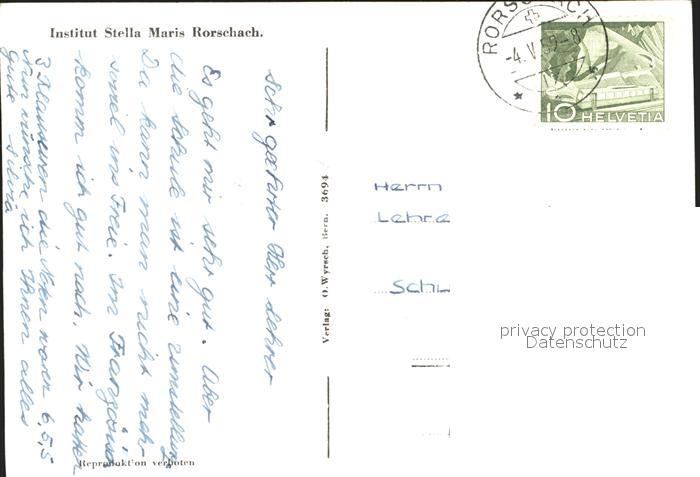 Institut Stella Maris Rorschach.
Sehr geehrter Herr Lehrer
Es geht mir sehr gut. Aber
die Schule ist eine Umstellung.
Da kann man nicht mehr
soviel ins Freie. Im Französisch
komm ich gut nach. Wir hatten
3 Klausuren die Noten waren 6,5,5
Nun wünsche ich Ihnen alles
gute Silvia
Reproduktion verboten
Verlag: O. Wyrsch, Bern. 3694
RORSCHACH
-4.V.59-8
10 HELVETIA
Herrn
Lehre
Schu
privacy protection
Datenschutz